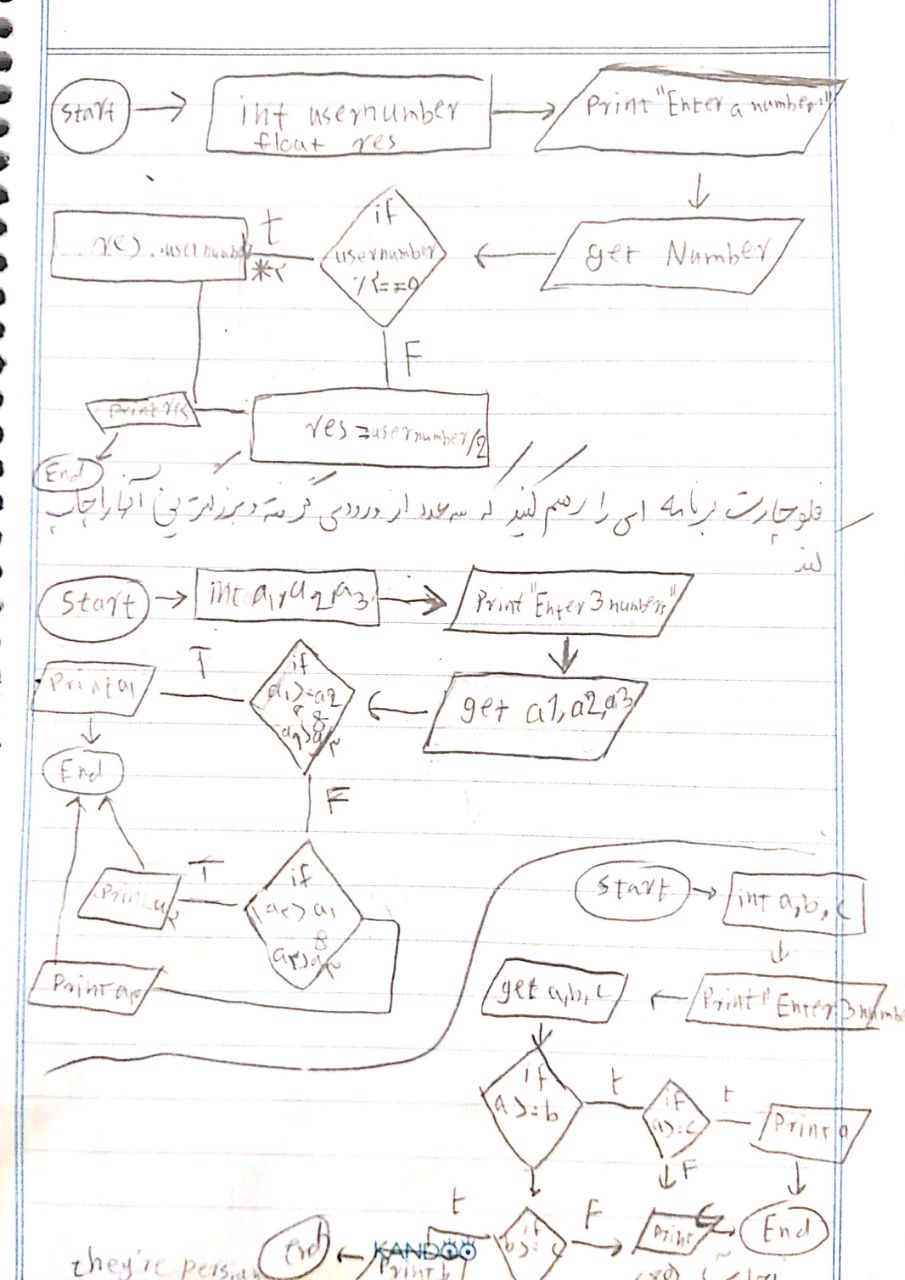 start
int usernumber
float res
Print "Enter a number!"
get Number
if
usernumber
%2==0
t
res usernumber
*2
F
res = usernumber/2
Print res
End
فلوچارت برنامه ای را رسم کنید که سه عدد از ورودی گرفته و بزرگترین آنها را چاپ
کند
Start
int a1, a2, a3
Print "Enter 3 numbers"
get a1, a2, a3
if
a1>=a2
&
T
Print a1
End
F
if
a2>a1
&
T
Print
Print
Start
int a, b, c
Print "Enter 3 numbe
get a, b, c
if
a>=b
t
if
a>=c
t
Print a
F
End
if
b>=c
F
Print C
t
Print b
End
KANDOO
they're persian